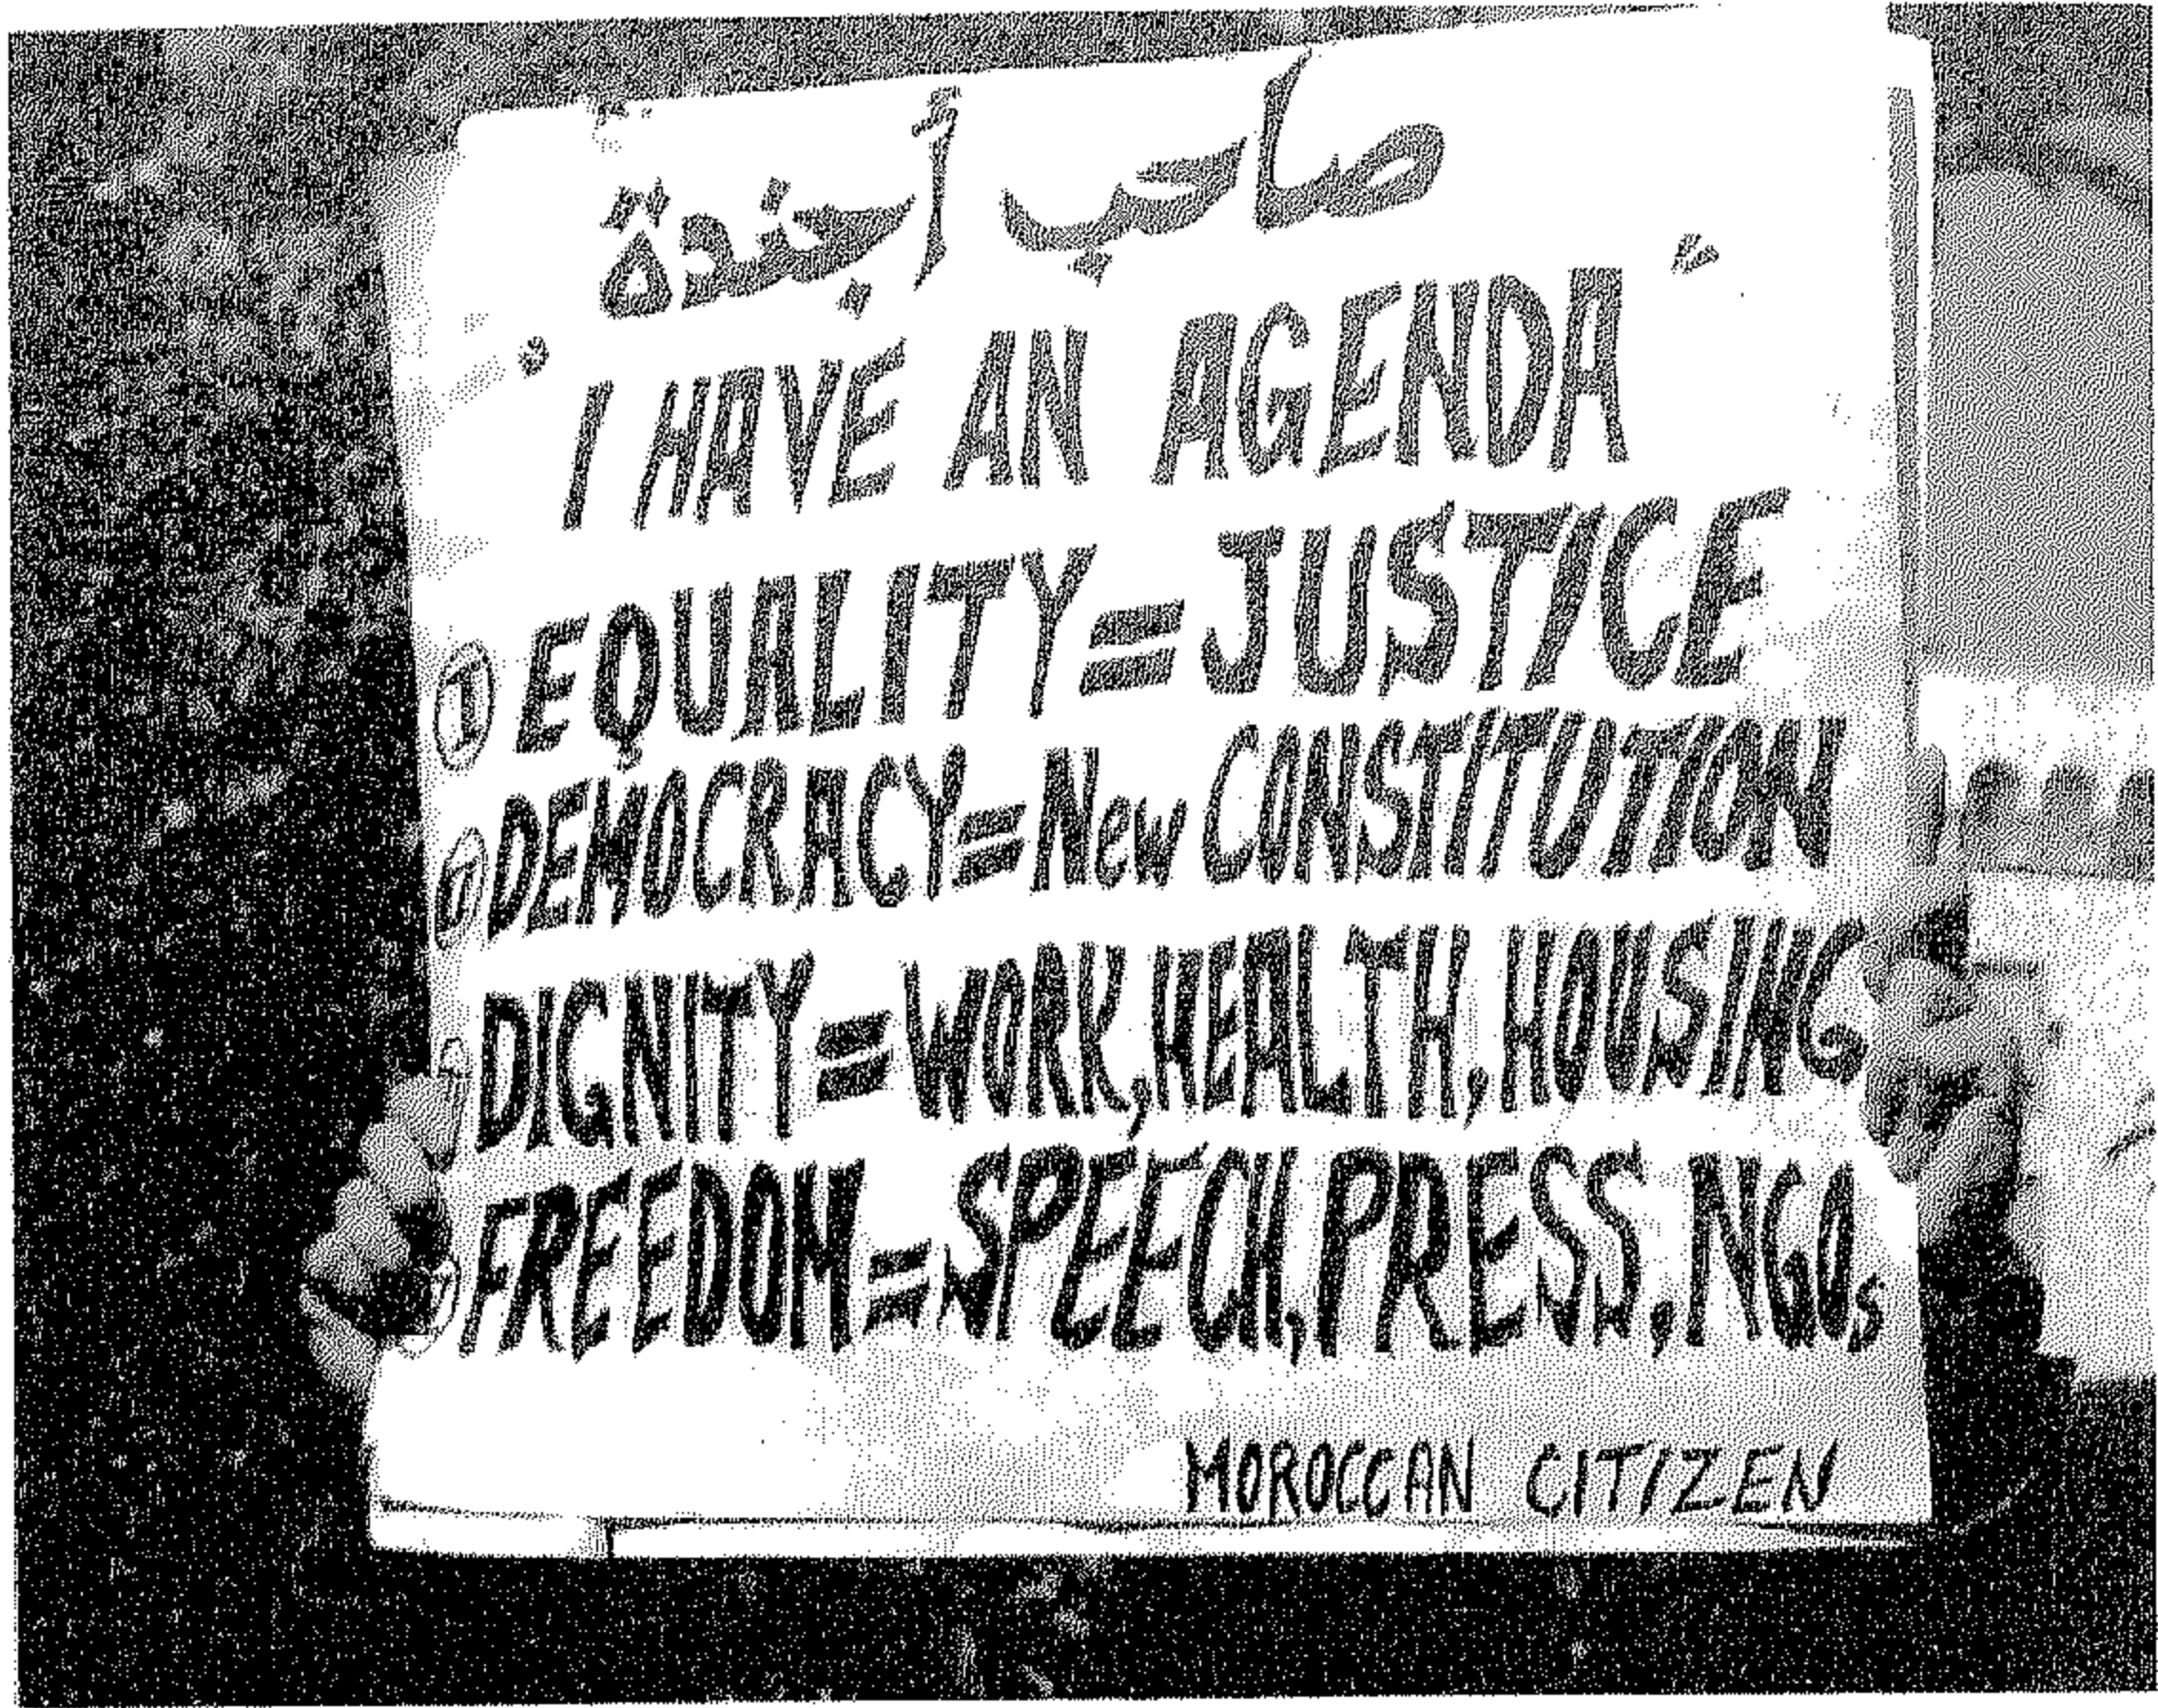 صاحب أجندة
"I HAVE AN AGENDA"
① EQUALITY=JUSTICE
DEMOCRACY=New CONSTITUTION
DIGNITY=WORK,HEALTH,HOUSING
FREEDOM=SPEECH,PRESS,NGOs
MOROCCAN CITIZEN